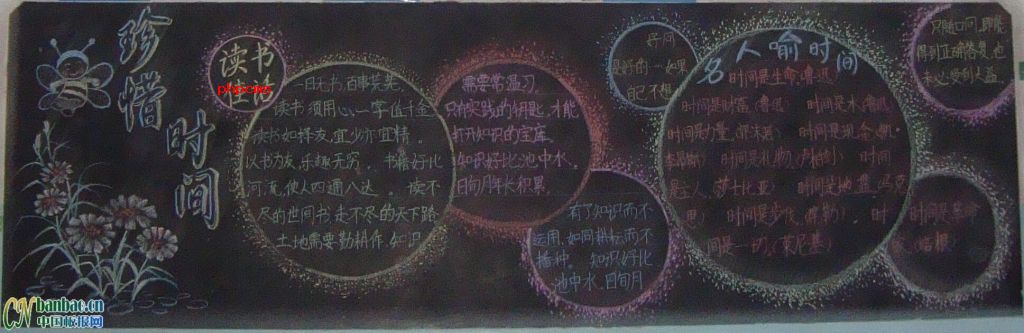 珍惜时间
读书
生活
phpcws
一日无书,百事荒芜。
读书须用心,一字值千金
读书如择友,宜少亦宜精。
以书为友,乐趣无穷。书籍好比
河流,使人四通八达。读不
尽的世间书,走不尽的天下路
土地需要勤耕作,知识
需要常温习。
只有实践的钥匙,才能
打开知识的宝库
知识好比池中水,
日旬月年长积累。
有了知识而不
运用,如同耕耘而不
播种。知识好比
池中水,日旬月
好问
自己不想
名人喻时间
时间是生命(鲁迅)
时间是财富 时间是水
时间是力量 时间是现金
时间是礼物 时间
是主人 时间是地盘(马克
思) 时间是步伐 时
间是一切
只随口问,即能
得到正确答复,也
未必受到大益
时间是革命
CN banbao.cn
中国板报网